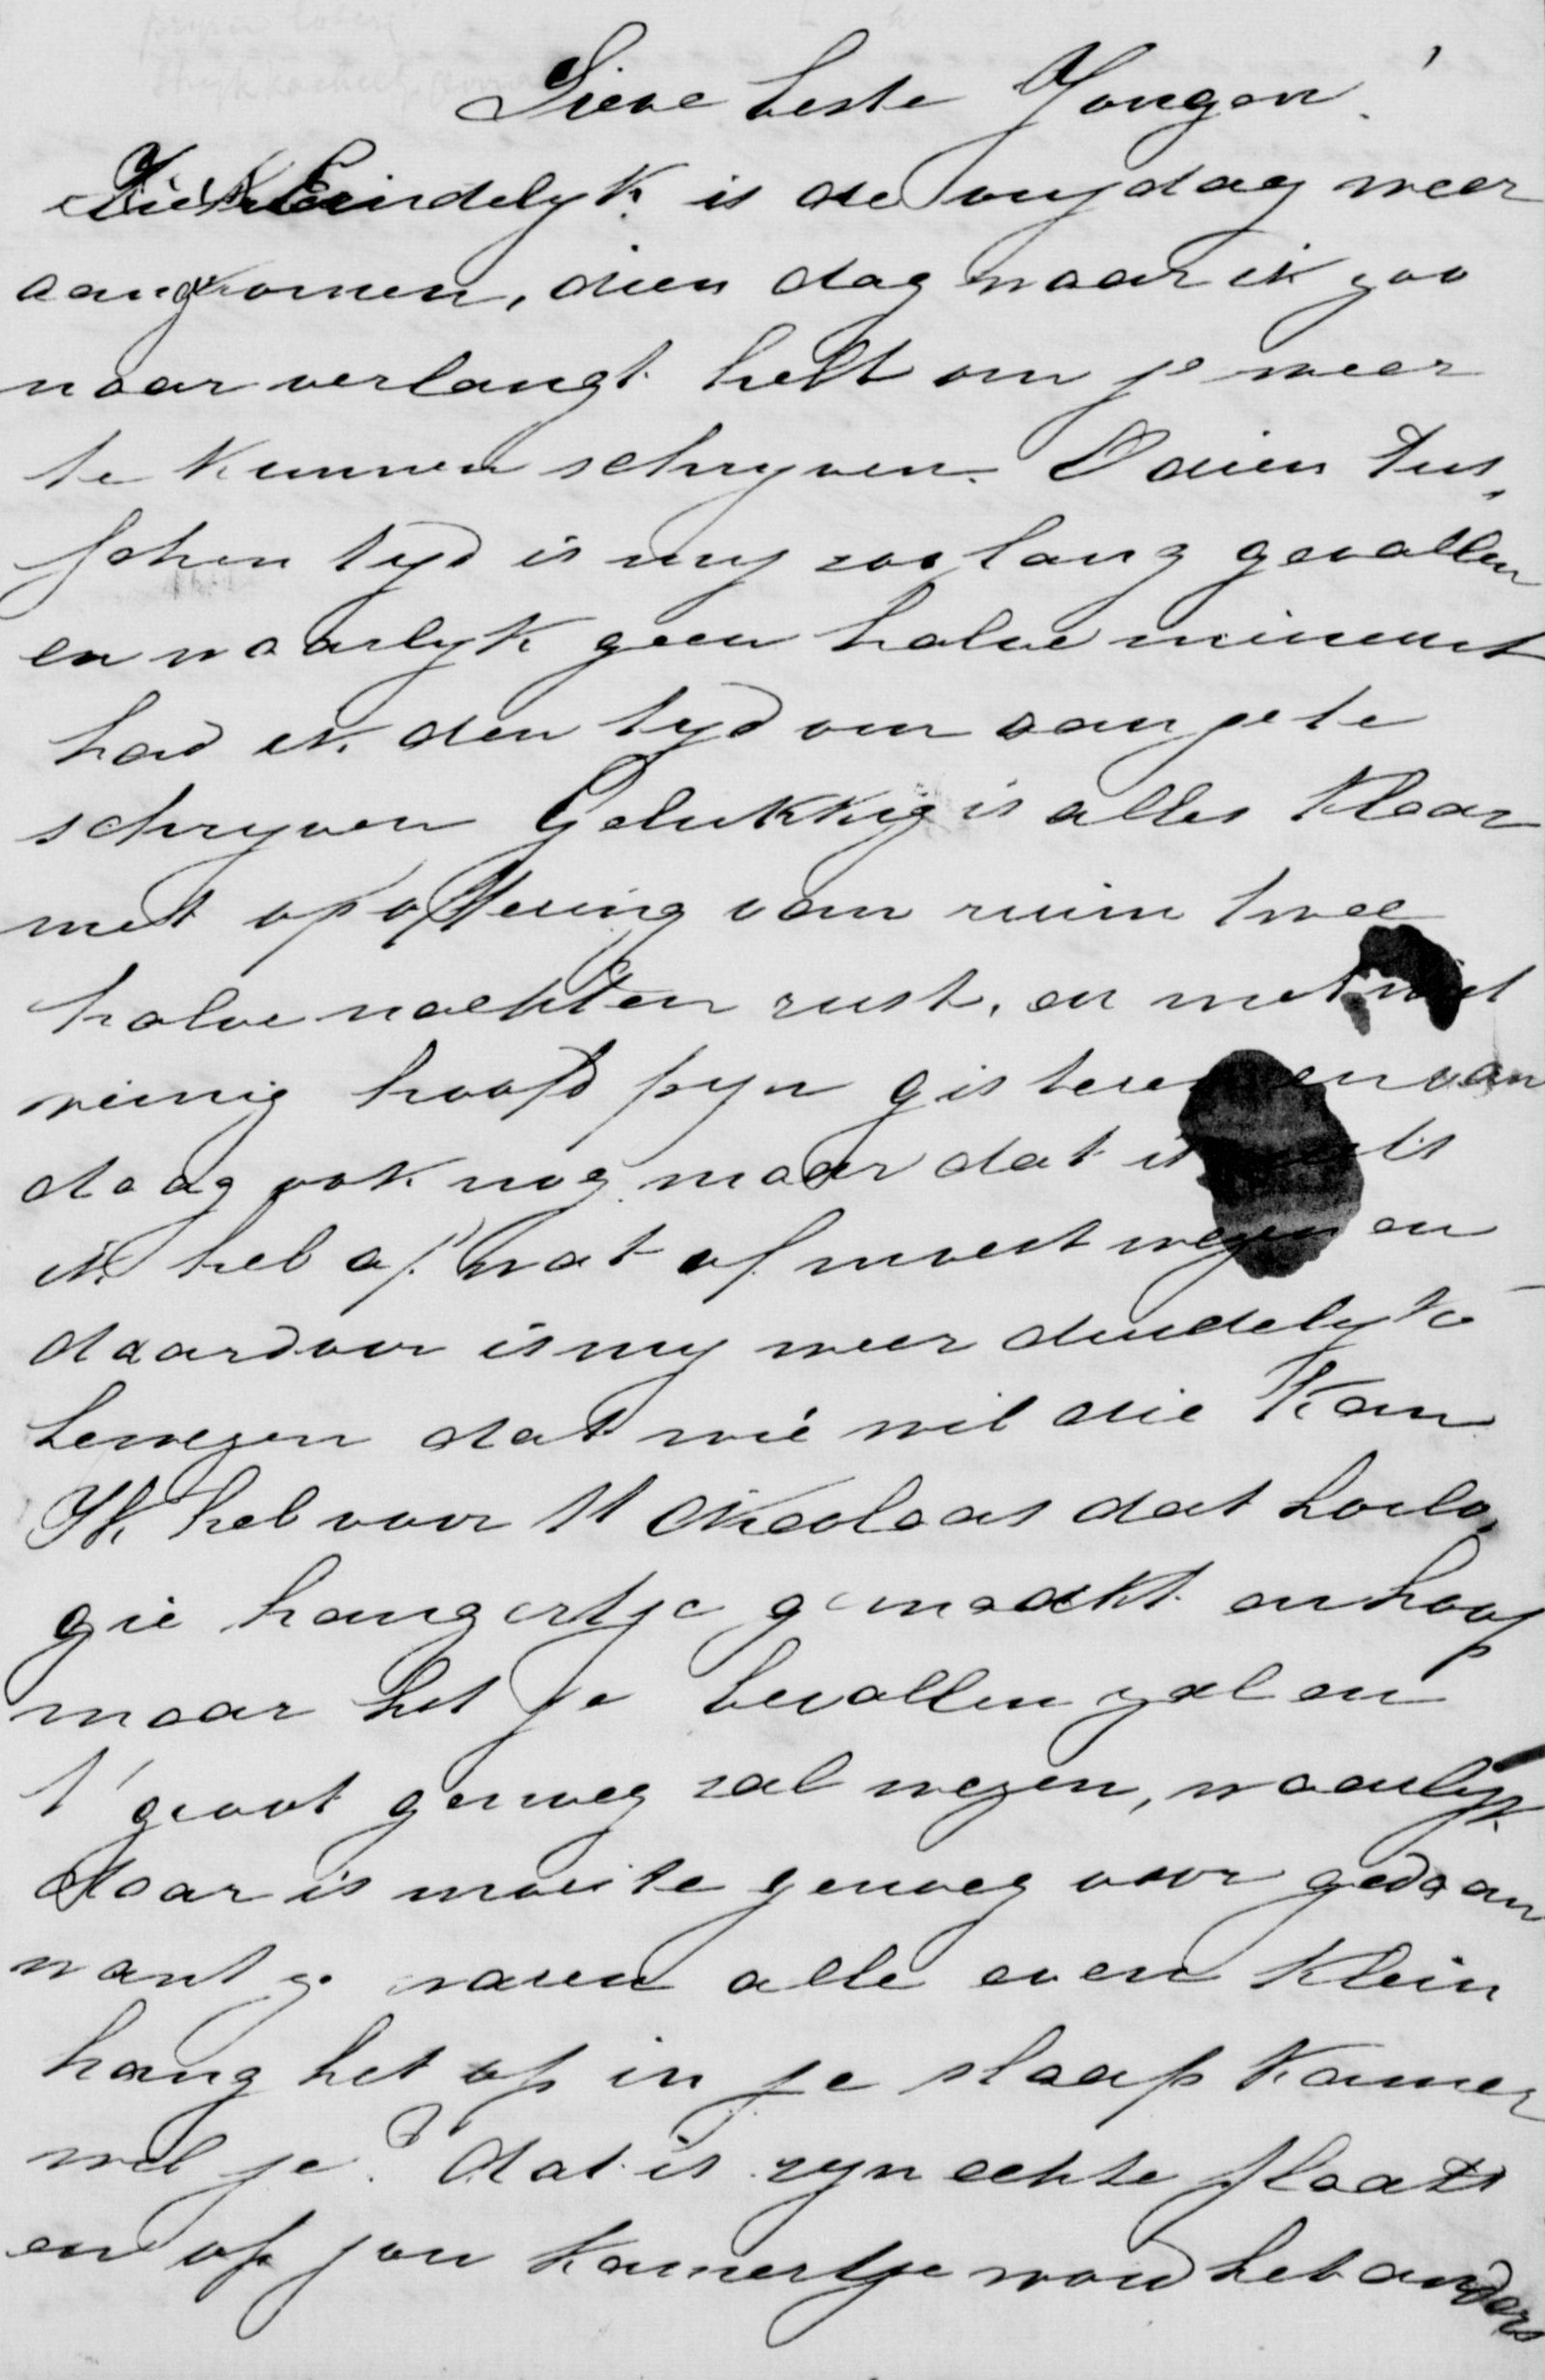 Lieve beste Jongen!
Eindelyk is de vrydag weer
aangekomen, dien dag waar ik zoo
naar verlangt hebt om je weer
te kunnen schryven. O dien tus„
schen tyd is my zoo lang gevallen
en waarlyk geen halve minuut
had ik den tyd om aan je te
schryven Gelukkig is alles klaar
met opoffering van ruim twee
halve nachten rust, en met niet
weinig hoofd pyn gisteren en van
daag ook nog maar dat is niets
ik heb af wat af moest wezen en
daardoor is my weer duidelyk
bewezen dat wie wil die kan
Ik heb voor St Nicolaas dat horlo„
gie hangertje gemaakt en hoop
maar het je bevallen zal en
t' groot genoeg zal wezen, waarlyk
daar is moeite genoeg voor gedaan
want ze waren alle even klein
hang het op in je slaap kamer
wil je? dat is zyn echte plaats
en op jou kamertje word het anders